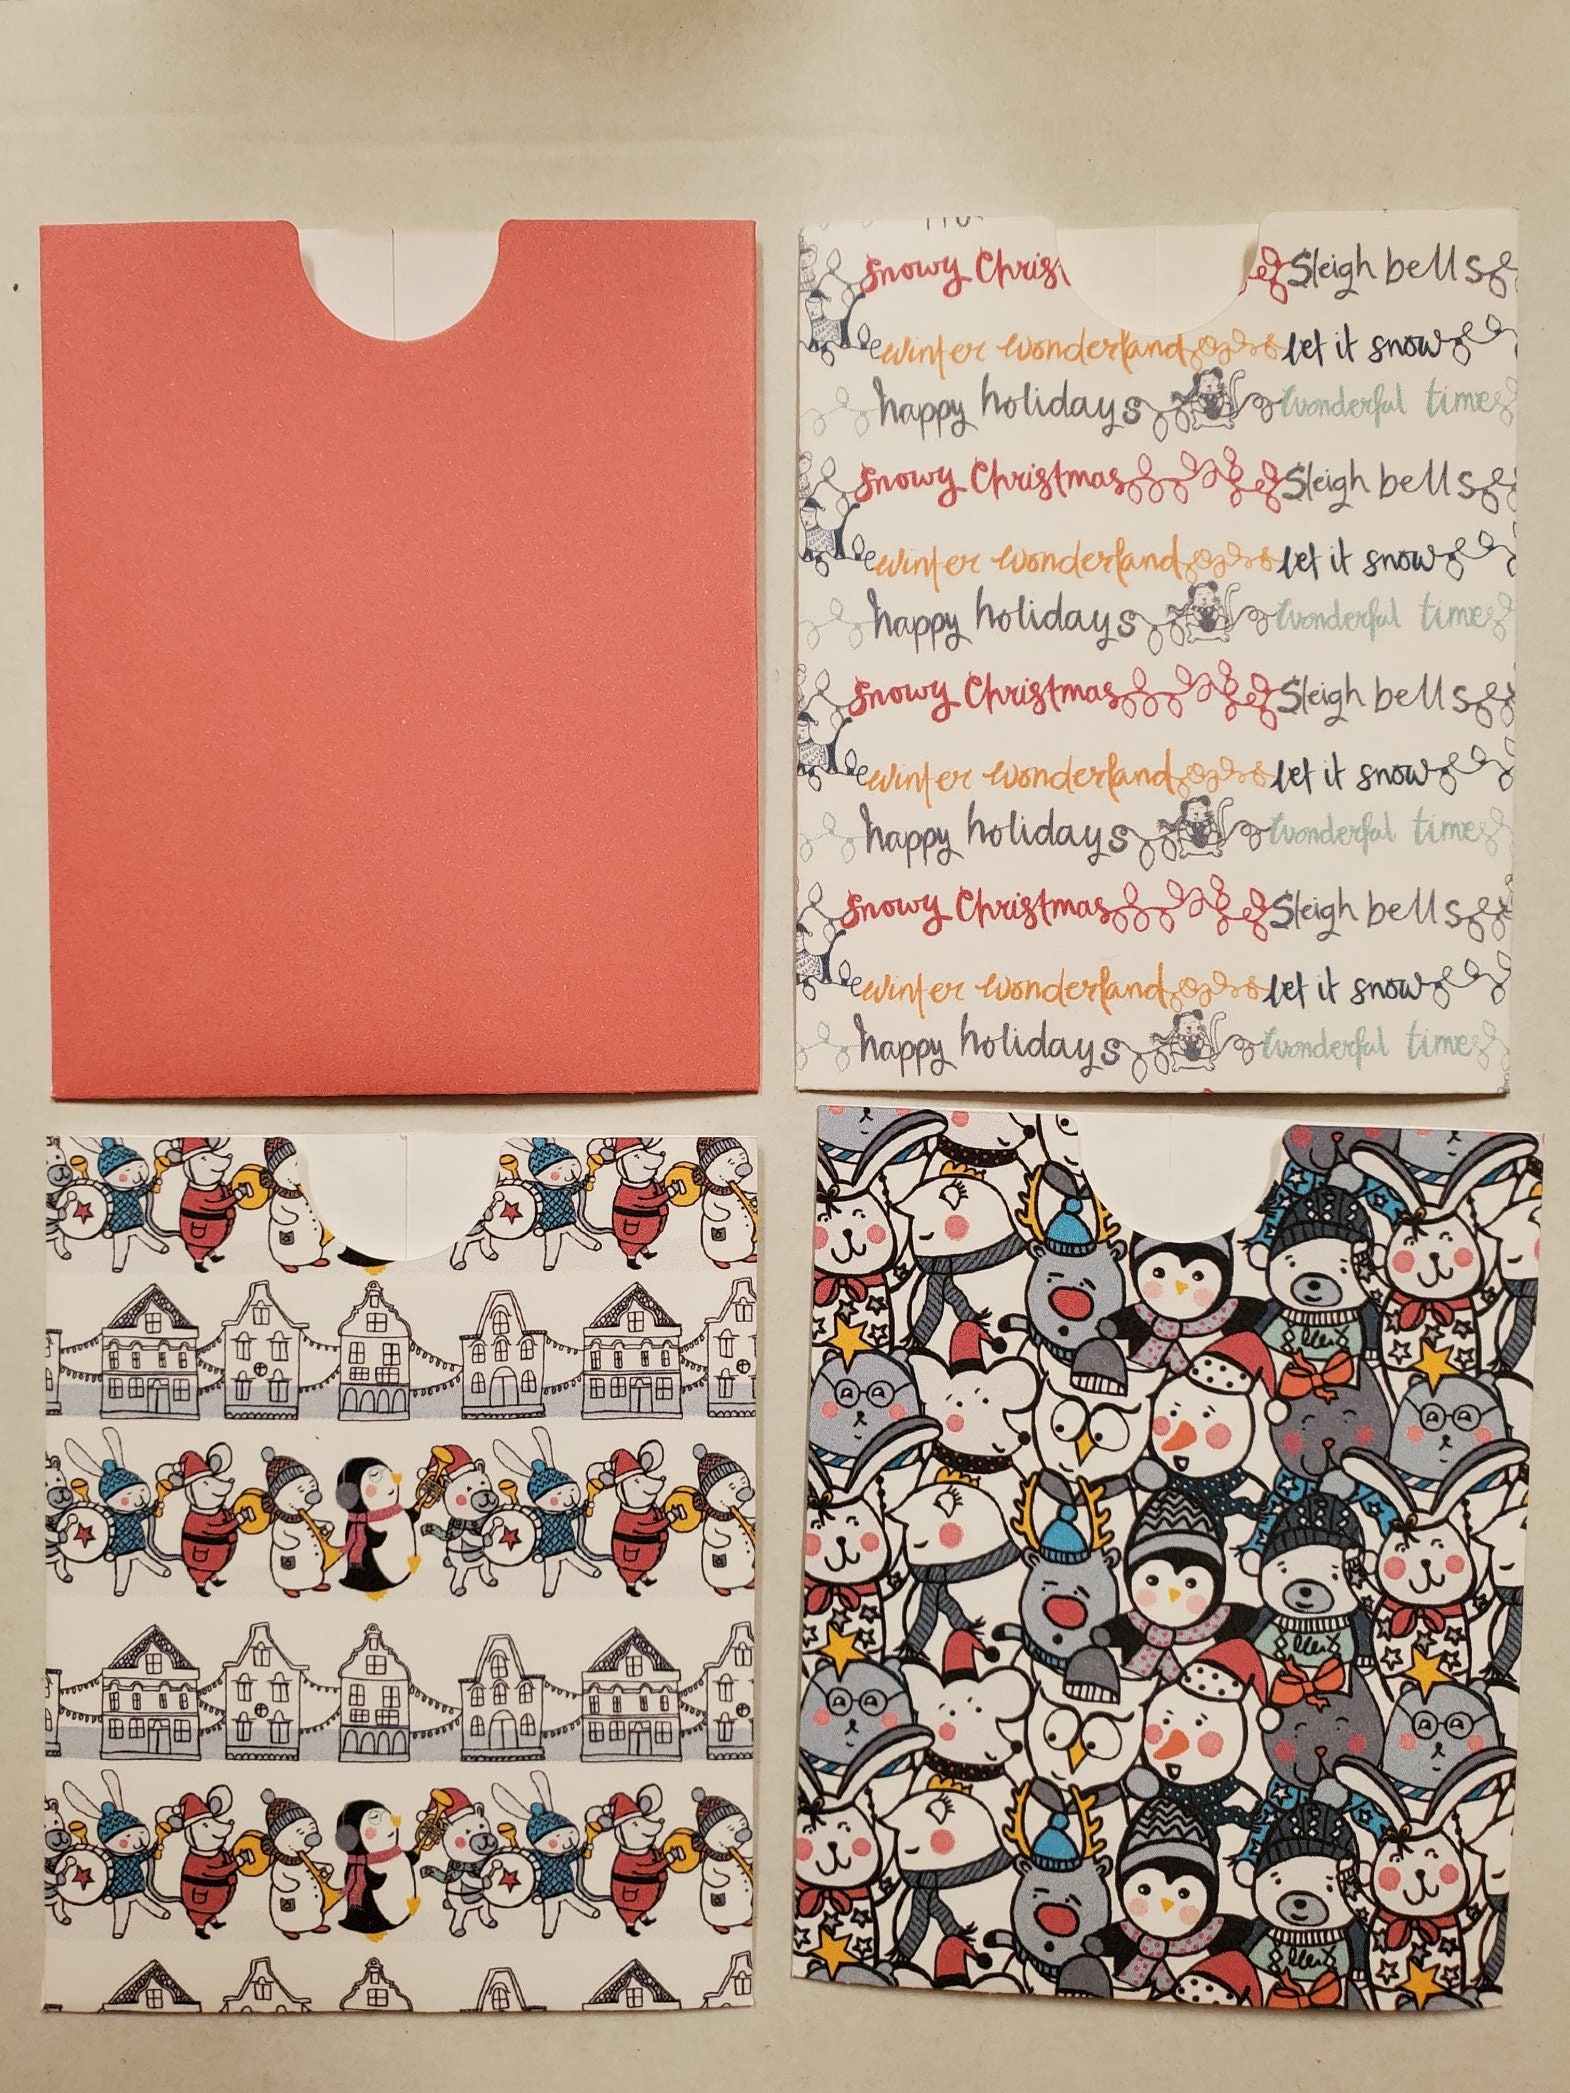 Snowy Chris Sleigh bells
winter wonderland let it snow
happy holidays Wonderful times
Snowy Christmas Sleigh bells
winter wonderland let it snow
happy holidays Wonderful times
Snowy Christmas Sleigh bells
winter wonderland let it snow
happy holidays Wonderful times
Snowy Christmas Sleigh bells
winter wonderland let it snow
happy holidays Wonderful times